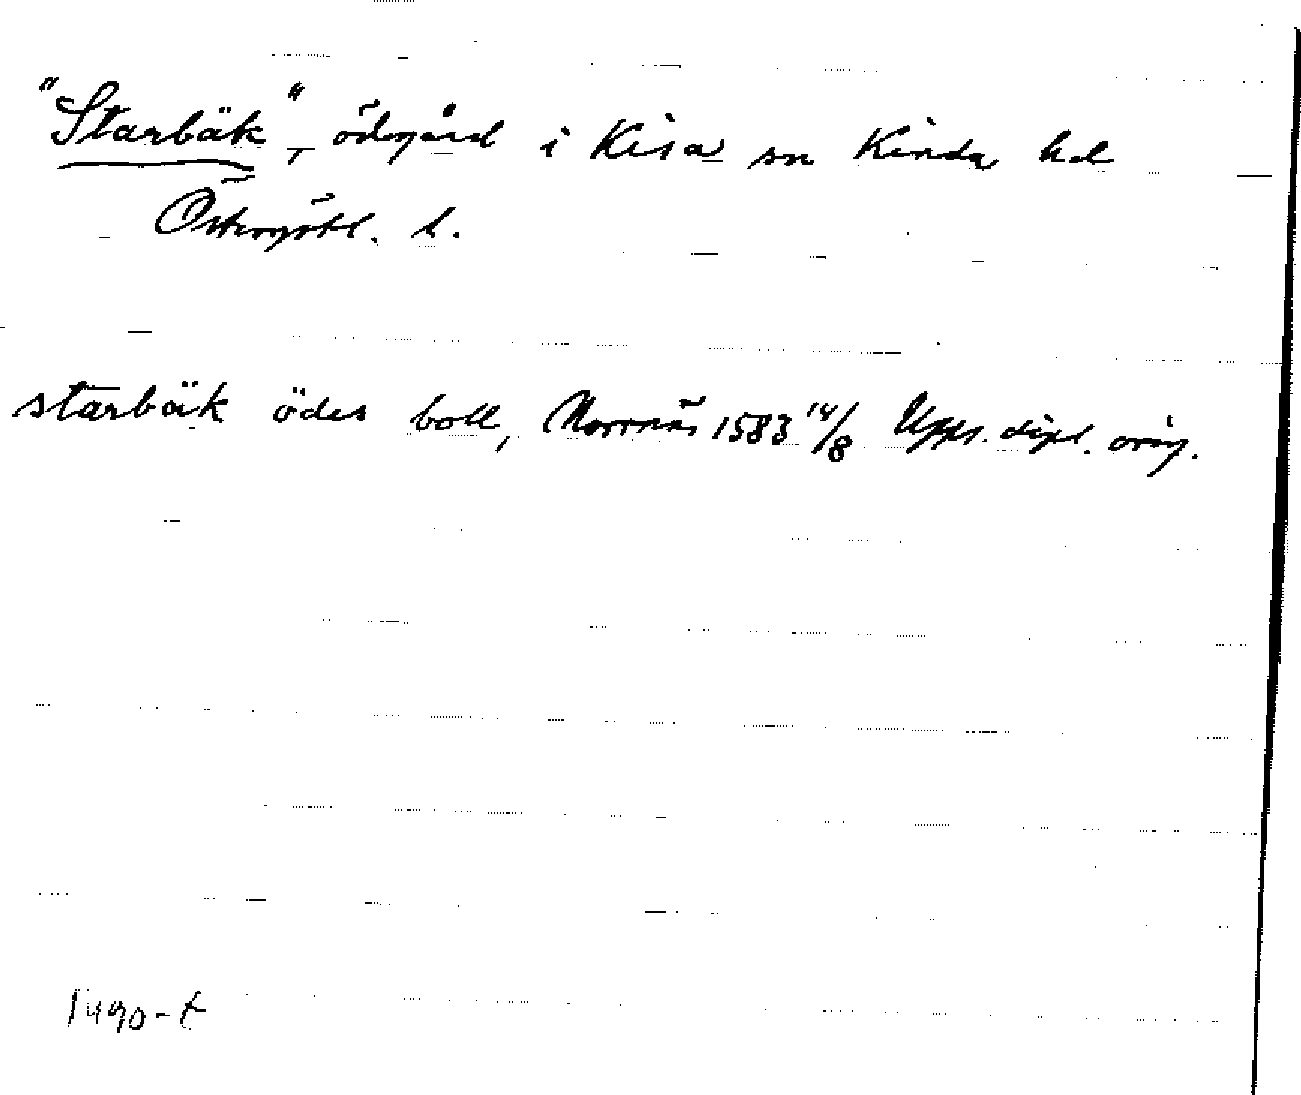 "Starbäk", ödegård i Kisa sn Kinda hd
Östergötl. l.
starbäk ödes boll, Norrnäs 1583 14/8 Upps. dipl. orig.
1490-t